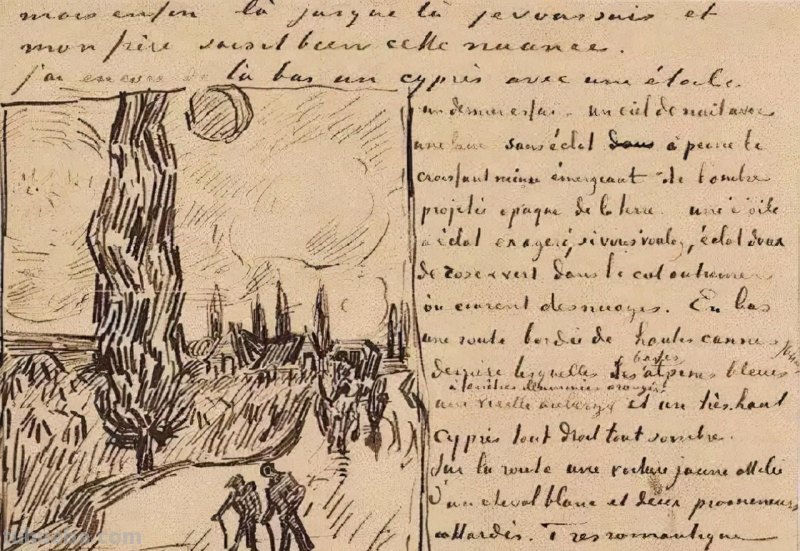 mais enfin là jusque là je vous sais et
mon frère saisit bien cette nuance.
j'ai encore de là bas un cyprès avec une étoile
un dernier essai – un ciel de nuit avec
une lune sans éclat dans à peine le
croissant mince émergeant de l'ombre
projetée opaque de la terre – une étoile
à éclat exagéré, si vous voulez, éclat doux
de rose et vert dans le ciel outremer
où courent des nuages. En bas
une route bordée de hautes cannes
derrière lesquelles les basses alpines bleues
à fenêtres illuminées orangé
une vieille auberge et un très haut
cyprès tout droit tout sombre.
Sur la route une voiture jaune attelée
d'un cheval blanc et deux promeneurs
attardés. Très romantique
.com